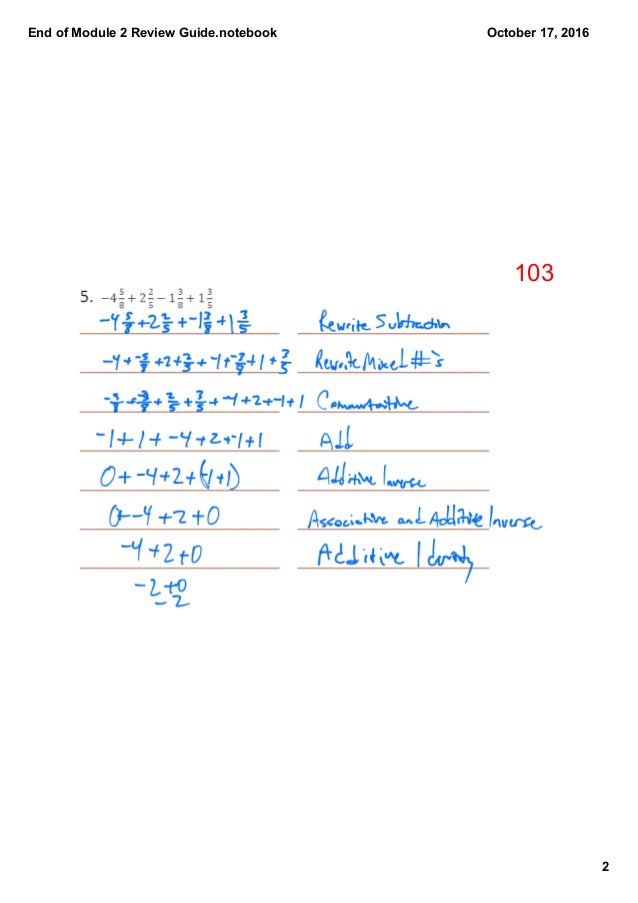 End of Module 2 Review Guide.notebook October 17, 2016
103
5. −4 5/8 + 2 2/5 − 1 3/8 + 1 3/5
-4 5/8 + 2 2/5 + -1 3/8 + 1 3/5 Rewrite Subtraction
-4 + -5/8 + 2 + 2/5 + -1 + -3/8 + 1 + 3/5 Rewrite Mixed #'s
-5/8 + -3/8 + 2/5 + 3/5 + -4 + 2 + -1 + 1 Commutative
-1 + 1 + -4 + 2 + -1 + 1 Add
0 + -4 + 2 + (-1 + 1) Additive Inverse
0 + -4 + 2 + 0 Associative and Additive Inverse
-4 + 2 + 0 Additive Identity
-2 + 0
-2
2